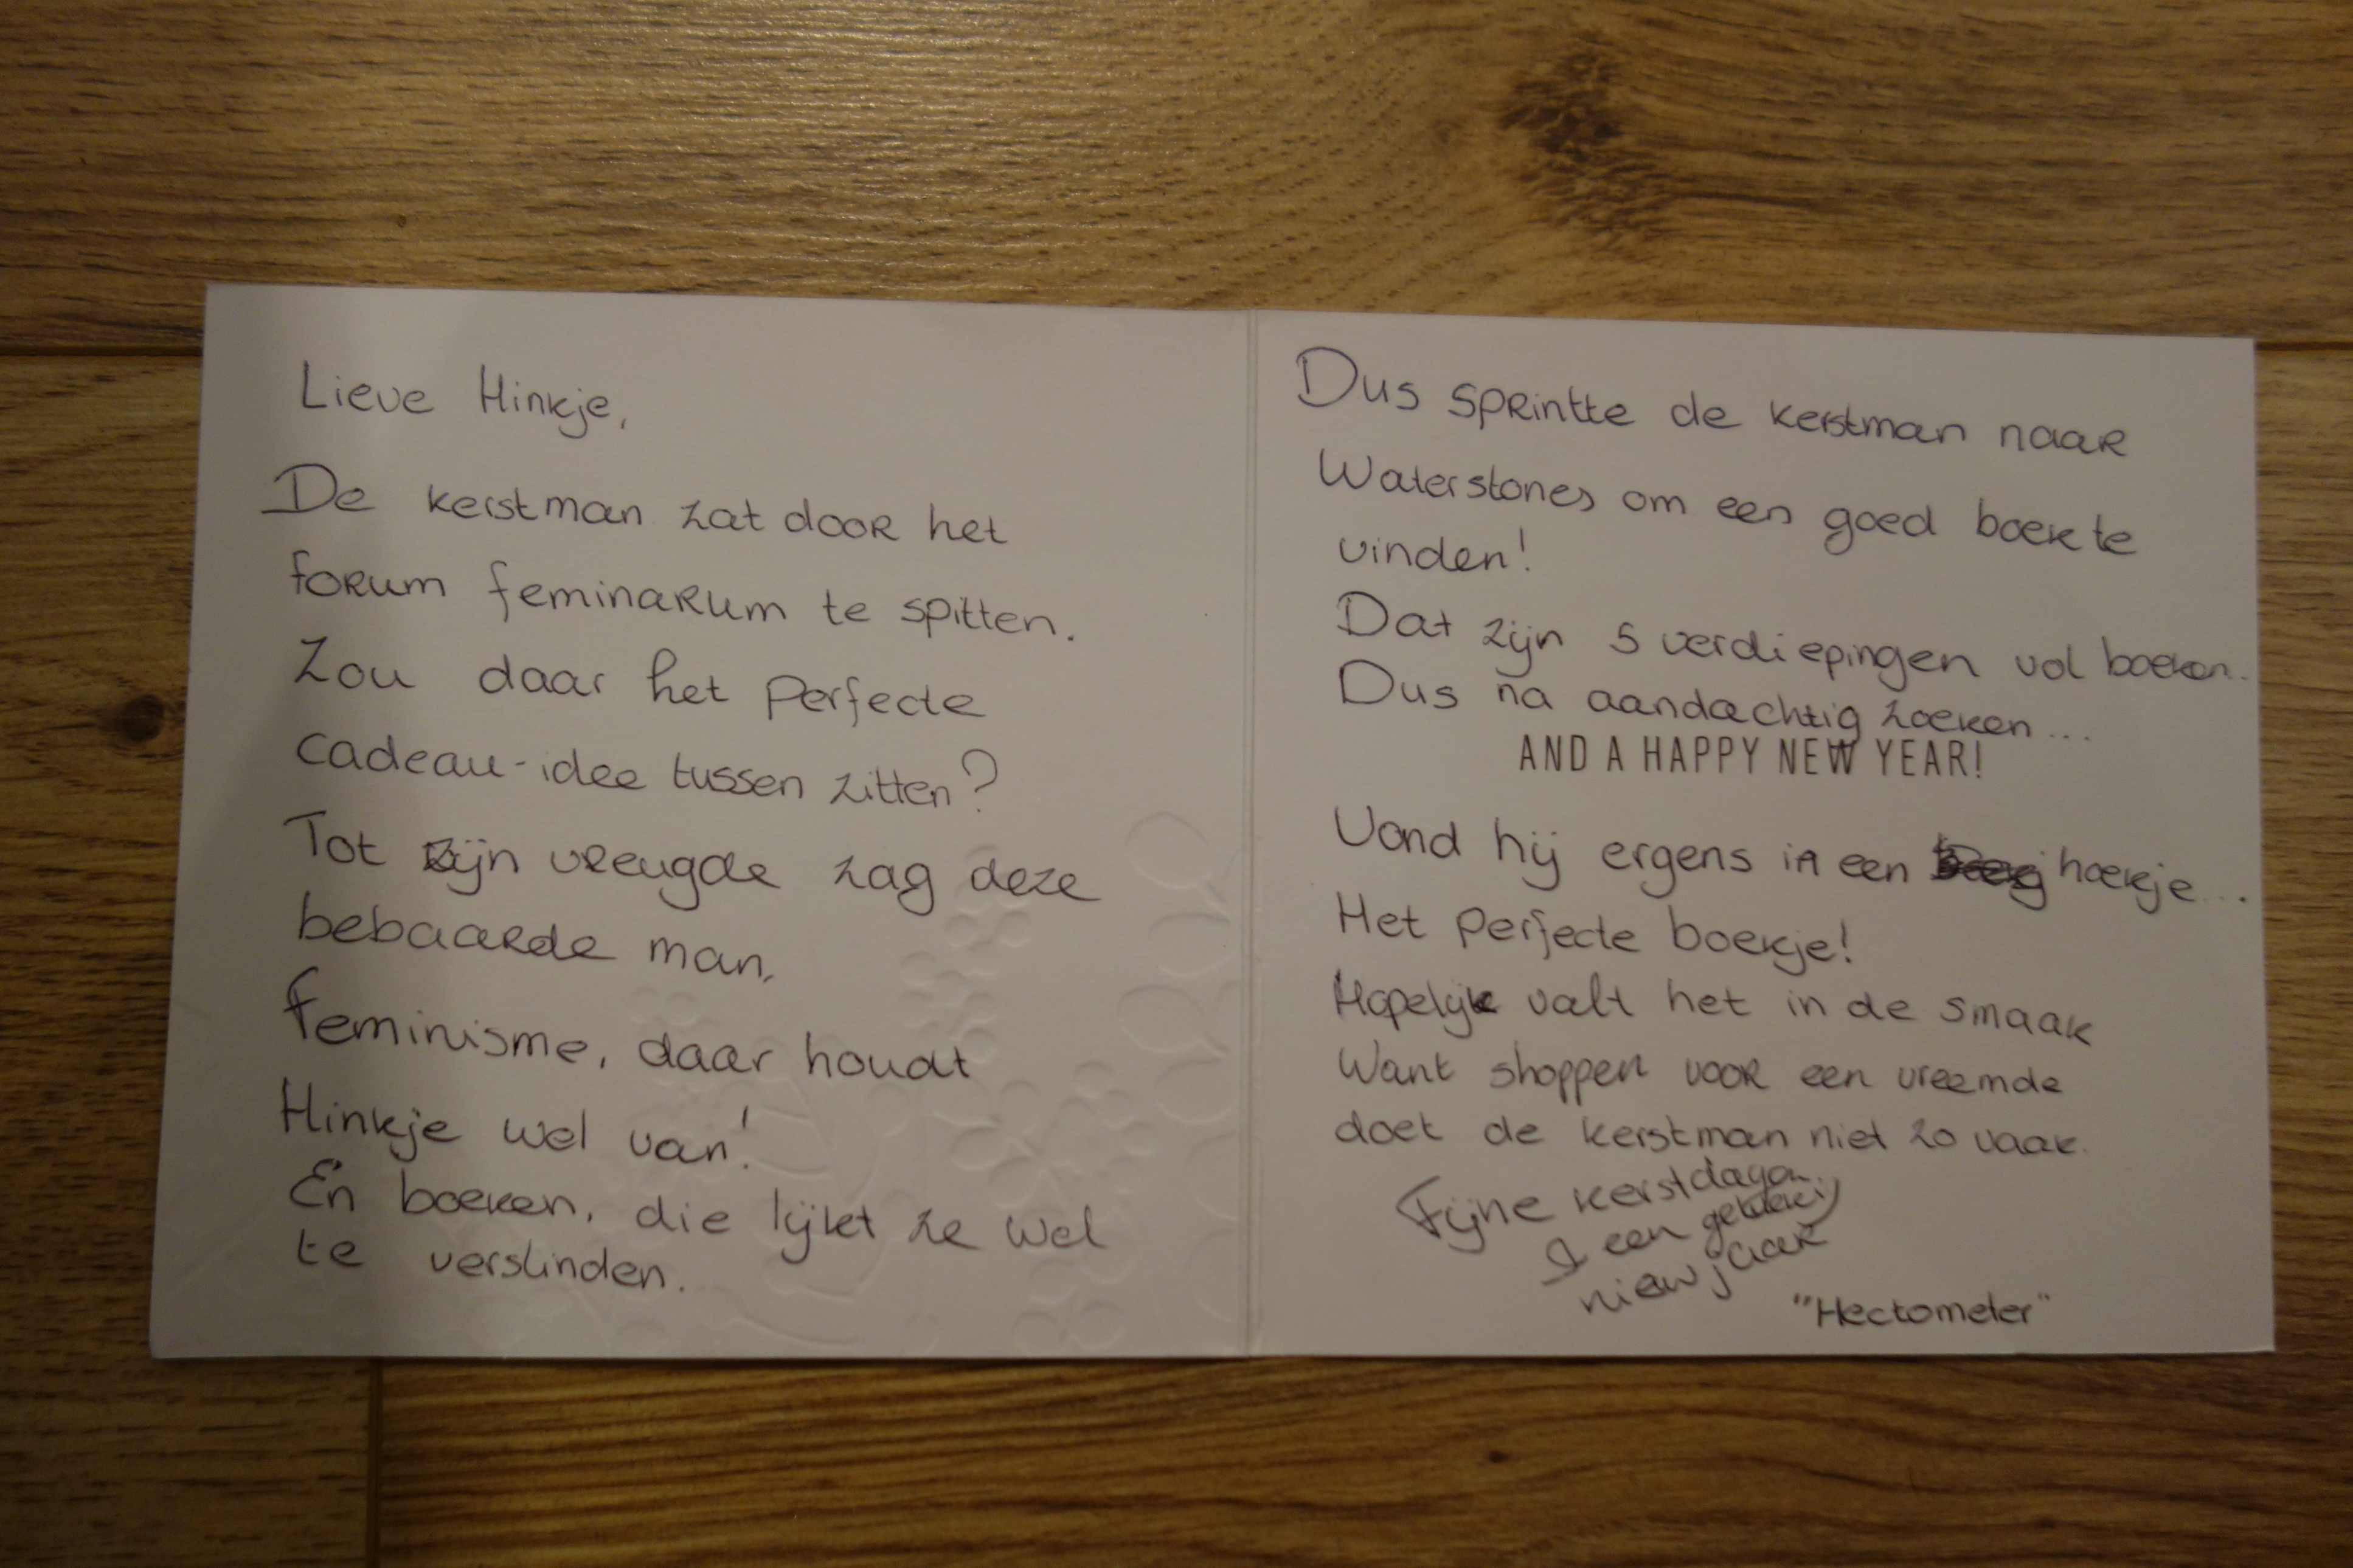 Lieve Hinkje,
De kerstman zat door het
forum feminarum te spitten.
Zou daar het perfecte
cadeau-idee tussen zitten?
Tot zijn vreugde zag deze
bebaarde man,
Feminisme, daar houdt
Hinkje wel van!
Én boeken, die lijkt ze wel
te verslinden.
Dus sprintte de kerstman naar
Waterstones om een goed boek te
vinden!
Dat zijn 5 verdiepingen vol boeken..
Dus na aandachtig zoeken...
AND A HAPPY NEW YEAR!
Vond hij ergens in een hoekje...
Het perfecte boekje!
Hopelijk valt het in de smaak
Want shoppen voor een vreemde
doet de kerstman niet zo vaak.
Fijne kerstdagen
& een gelukkig
nieuwjaar
"Hectometer"